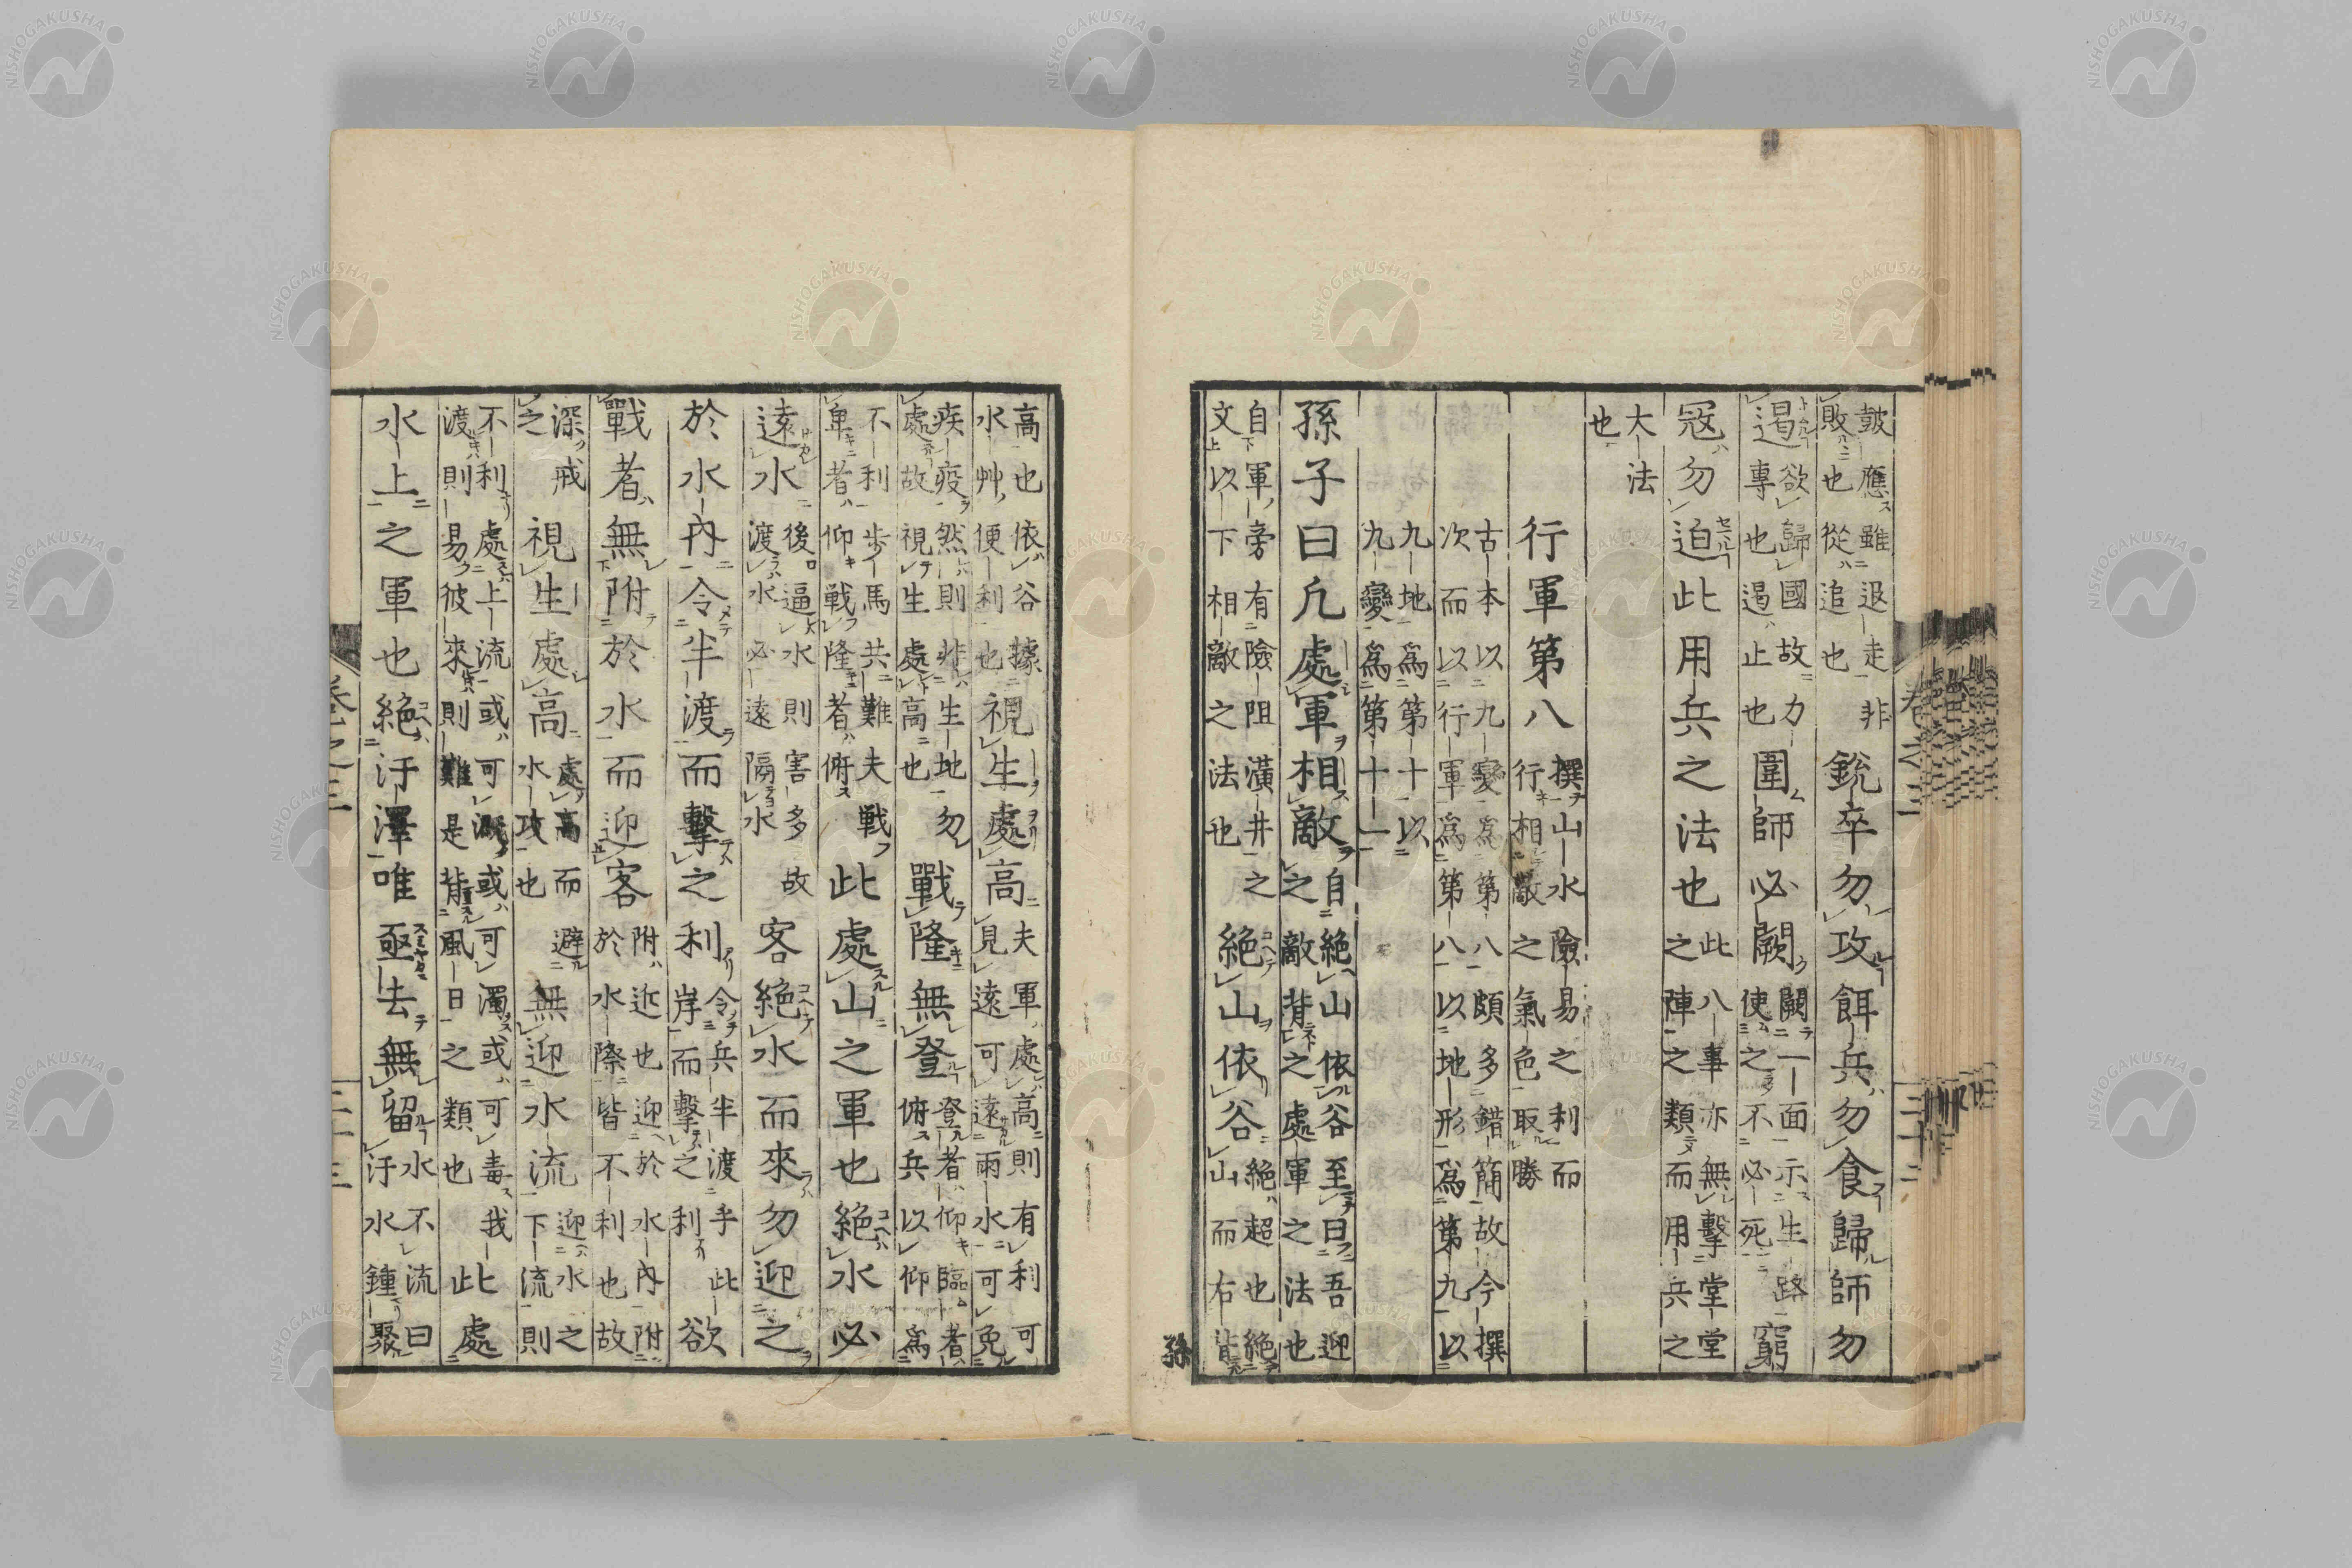 皷應雖退走非
敗也從追也
銳卒勿攻餌兵勿食歸師勿
遏
欲歸國故力
專也遏止也
圍師必闕
闕一面示生路
使之不必死
窮
寇勿迫此用兵之法也
此八事亦無擊堂堂
之陣之類而用兵之
大法
也
行軍第八
撰山水險易之利而
行相敵之氣色取勝
古本以九變爲第八頗多錯簡故今撰
次而以行軍爲第八以地形爲第九以
九地爲第十以
九變爲第十一
孫子曰凡處軍相敵
自絕山依谷至曰吾迎
之敵背之處軍之法也
自軍旁有險阻潢井之
文以下相敵之法也
絕山依谷
絕超也絕
山而右背
孫
高也依谷據
水艸便利也
視生處高
夫軍處高則有利可
見遠可遠雨水可免
疾疫然則非生地勿
處故視生處高也
戰隆無登
登者仰臨者
俯兵以仰爲
不利步馬共難夫戰
卑者仰戰隆者俯
此處山之軍也絕水必
遠水
後逼水則害多故
渡水必遠隔水
客絕水而來勿迎之
於水內令半渡而擊之利
令兵半渡乎此
岸而擊之利
欲
戰者無附於水而迎客
附近也迎於水內附
於水際皆不利也故
深戒
之
視生處高
處高而避
水攻也
無迎水流
迎水之
下流則
不利處上流或可溉或可濁或可毒我
渡則易彼來則難是背風日之類也
此處
水上之軍也絕汙澤唯亟去無留
水不流曰
汙水鍾聚
卷之二
三十二
NISHOGAKUSHA